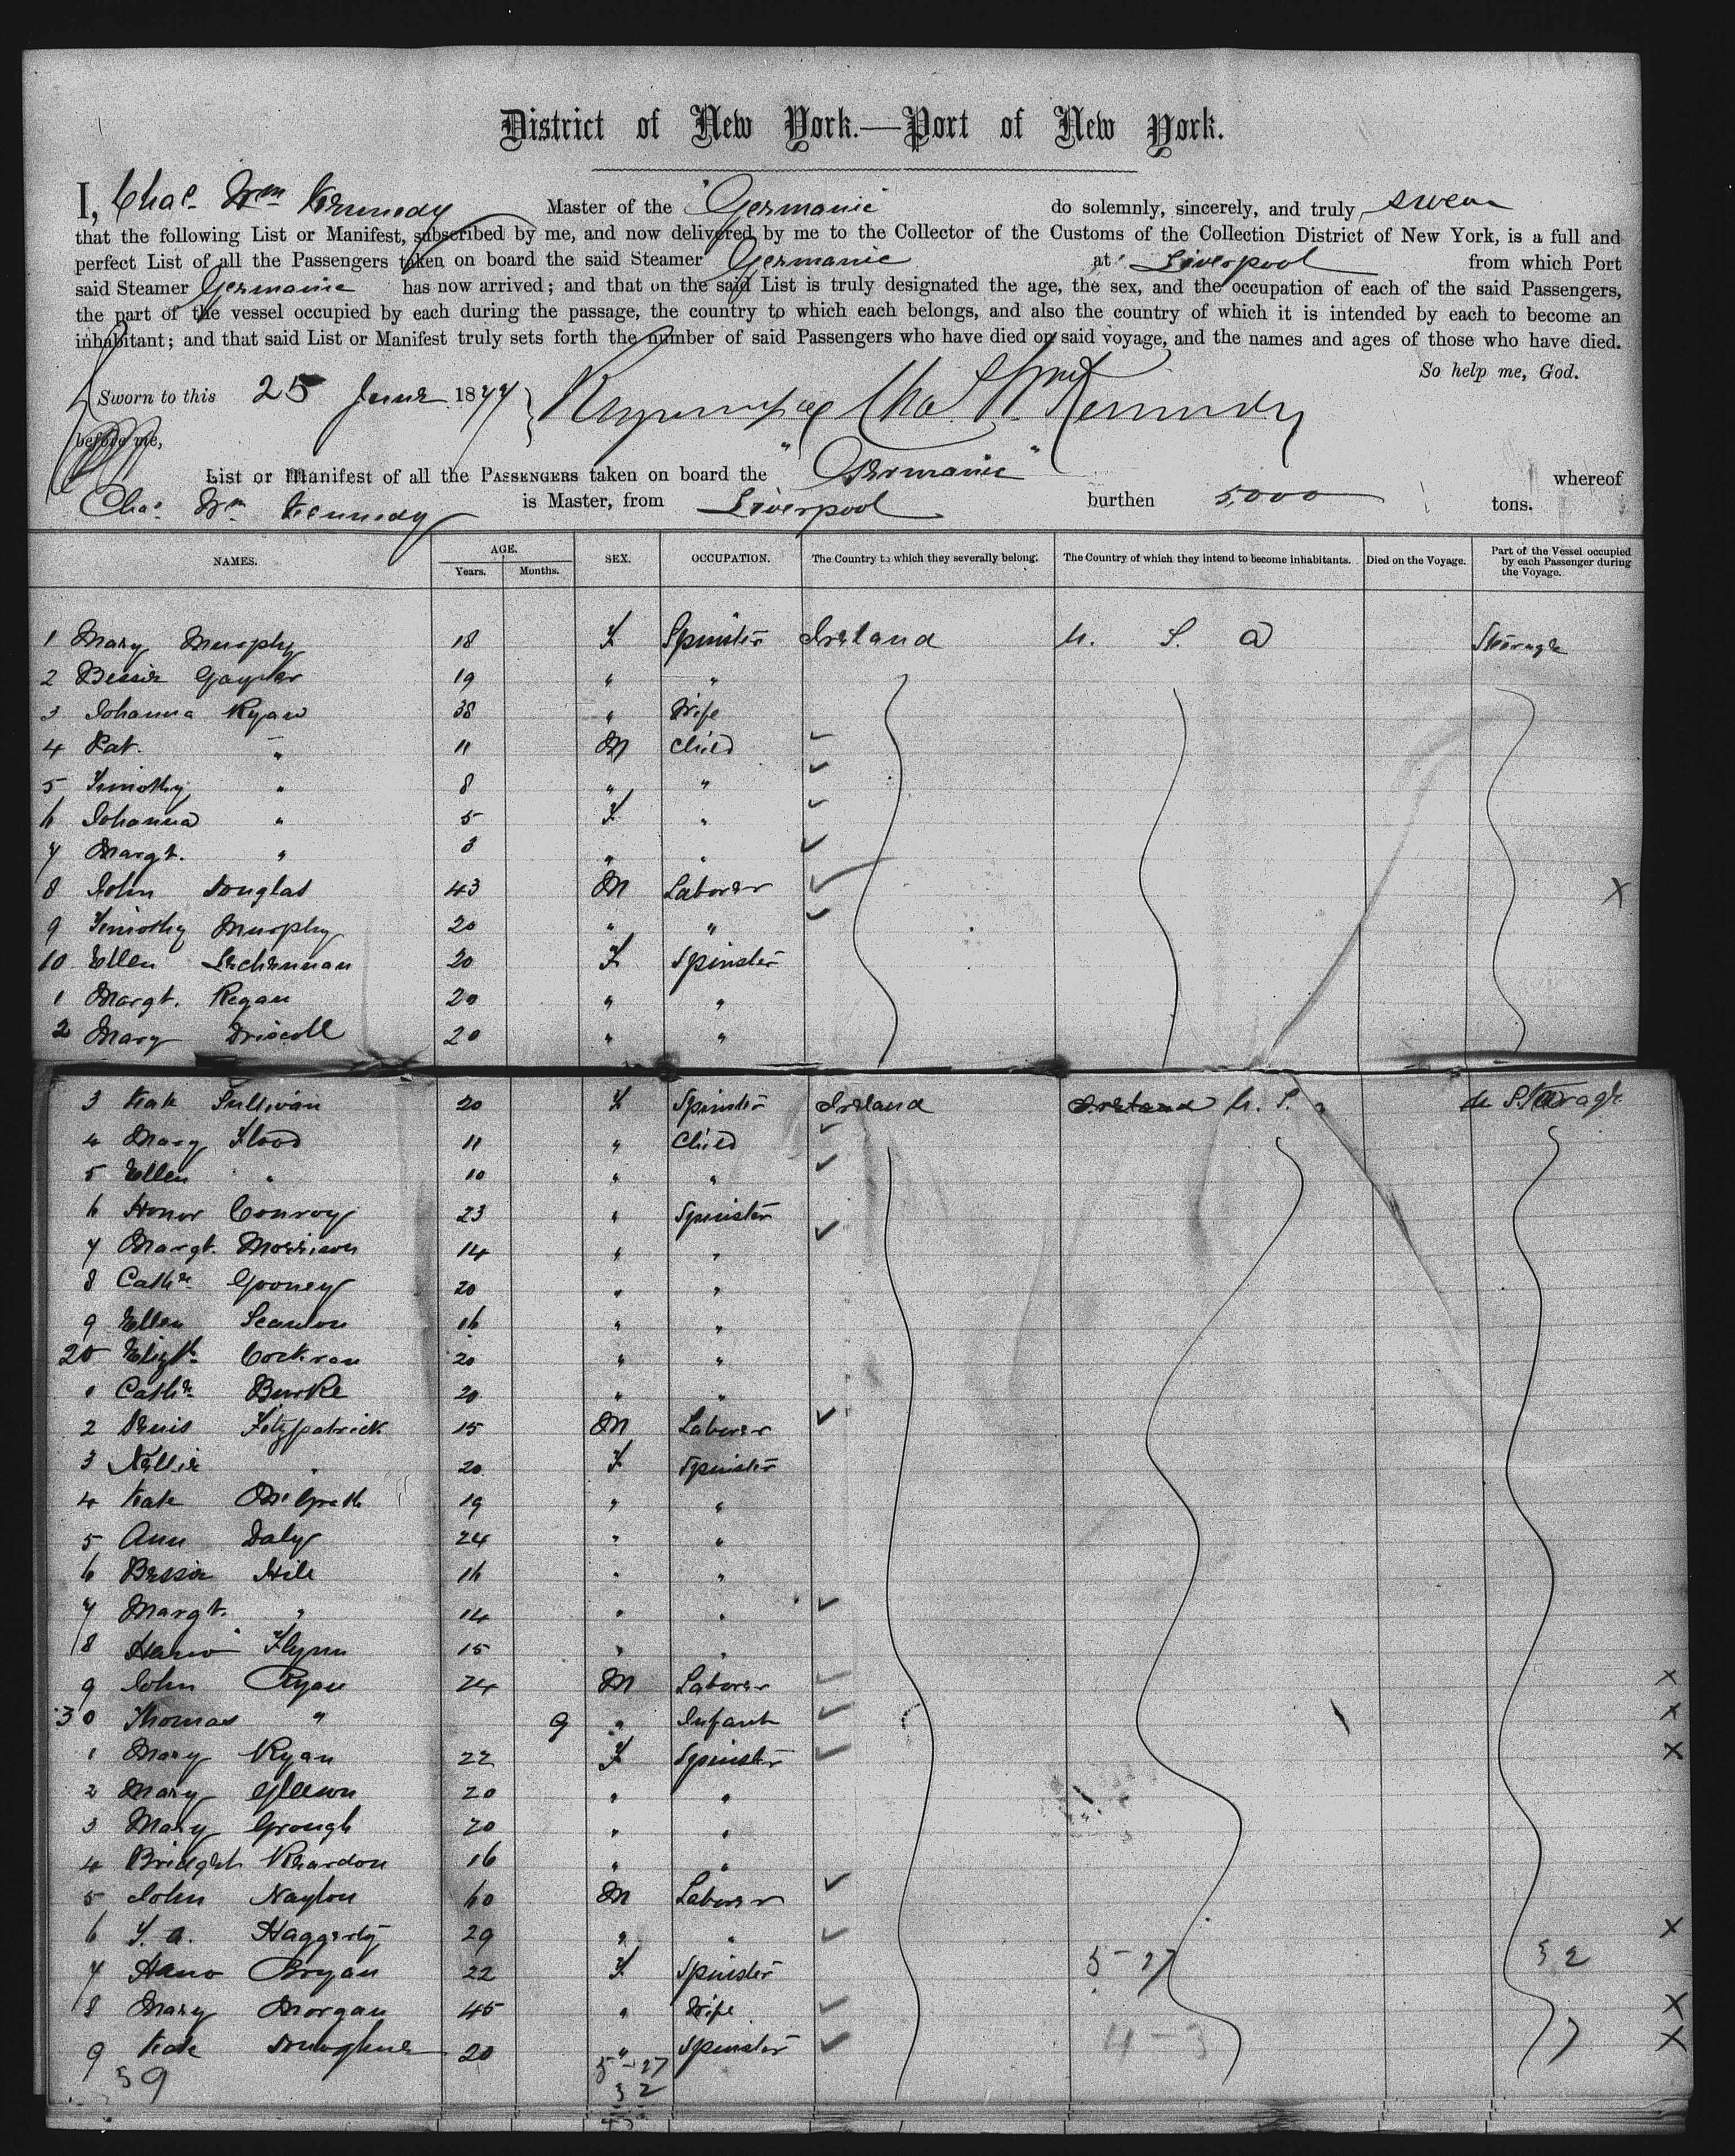 District of New York.—Port of New York.
I, Chas Wm Kennedy Master of the "Germanic do solemnly, sincerely, and truly swear
that the following List or Manifest, subscribed by me, and now delivered by me to the Collector of the Customs of the Collection District of New York, is a full and
perfect List of all the Passengers taken on board the said Steamer Germanic at Liverpool from which Port
said Steamer Germanic has now arrived; and that on the said List is truly designated the age, the sex, and the occupation of each of the said Passengers,
the part of the vessel occupied by each during the passage, the country to which each belongs, and also the country of which it is intended by each to become an
inhabitant; and that said List or Manifest truly sets forth the number of said Passengers who have died on said voyage, and the names and ages of those who have died.
So help me, God.
Sworn to this 25 June 1877 } Chas Wm Kennedy
before me,
List or Manifest of all the PASSENGERS taken on board the "Germanic" whereof
Chas Wm Kennedy is Master, from Liverpool burthen 5,000 tons.
NAMES. AGE. Years. Months. SEX. OCCUPATION. The Country to which they severally belong. The Country of which they intend to become inhabitants. Died on the Voyage. Part of the Vessel occupied by each Passenger during the Voyage.
1 Mary Murphy 18 F Spinster Ireland U. S. A Steerage
2 Bessie 19 " "
3 Johanna Ryan 38 " Wife
4 Pat. " 11 M Child
5 Timothy " 8 " "
6 Johanna " 5 F "
7 Margt. " 3 " "
8 John Douglas 43 M Laborer X
9 Timothy Murphy 20 " "
10 Ellen 20 F Spinster
1 Margt. Regan 20 " "
2 Mary Driscoll 20 " "
3 Kate Sullivan 20 F Spinster Ireland U. S. Steerage
4 Mary Flood 11 " Child
5 Ellen " 10 " "
6 Honor Conroy 23 " Spinster
7 Margt. Morrison 14 " "
8 Cathe. Gooney 20 " "
9 Ellen Scanlon 16 " "
20 Elizth. Corkran 20 " "
1 Cathe. Burke 20 " "
2 Denis Fitzpatrick 15 M Laborer
3 Nellie " 20 F Spinster
4 Kate McGrath 19 " "
5 Ann Daly 24 " "
6 Bessie Hill 16 " "
7 Margt. " 14 " "
8 Flynn 15 " "
9 John Ryan 24 M Laborer X
30 Thomas " 9 " Infant X
1 Mary Ryan 22 F Spinster X
2 Mary Gleeson 20 " "
3 Mary Grough 20 " "
4 Bridget Reardon 16 " "
5 John Naylon 60 M Laborer
6 T. A. Haggerty 29 " " X
7 Bryan 22 F Spinster 5-27 32
8 Mary Morgan 45 " Wife X
9 Kate Donoghue 20 " Spinster 4-3 X
39 5-27
32